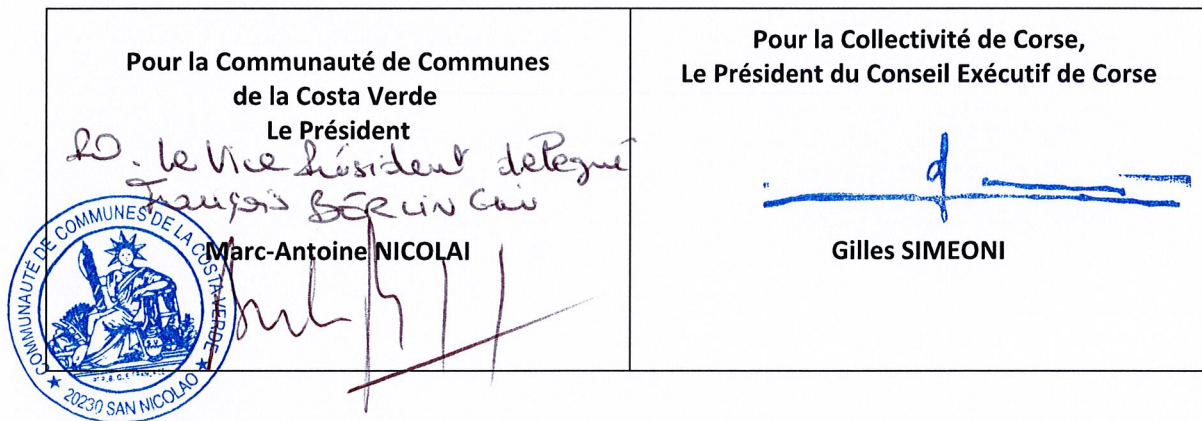 Pour la Communauté de Communes
de la Costa Verde
Le Président
Le Vice Président delegué
François BERLINGHI
Marc-Antoine NICOLAI
COMMUNAUTÉ DE COMMUNES DE LA COSTA VERDE
★ 20230 SAN NICOLAO ★
Pour la Collectivité de Corse,
Le Président du Conseil Exécutif de Corse
Gilles SIMEONI